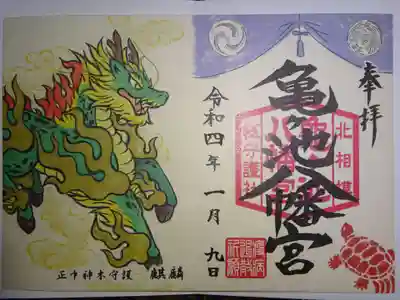 奉拝
北相模
亀ヶ池八幡宮
総守護社
令和四年 一月 九日
疫病
退散
祈願
正中神木守護 麒麟